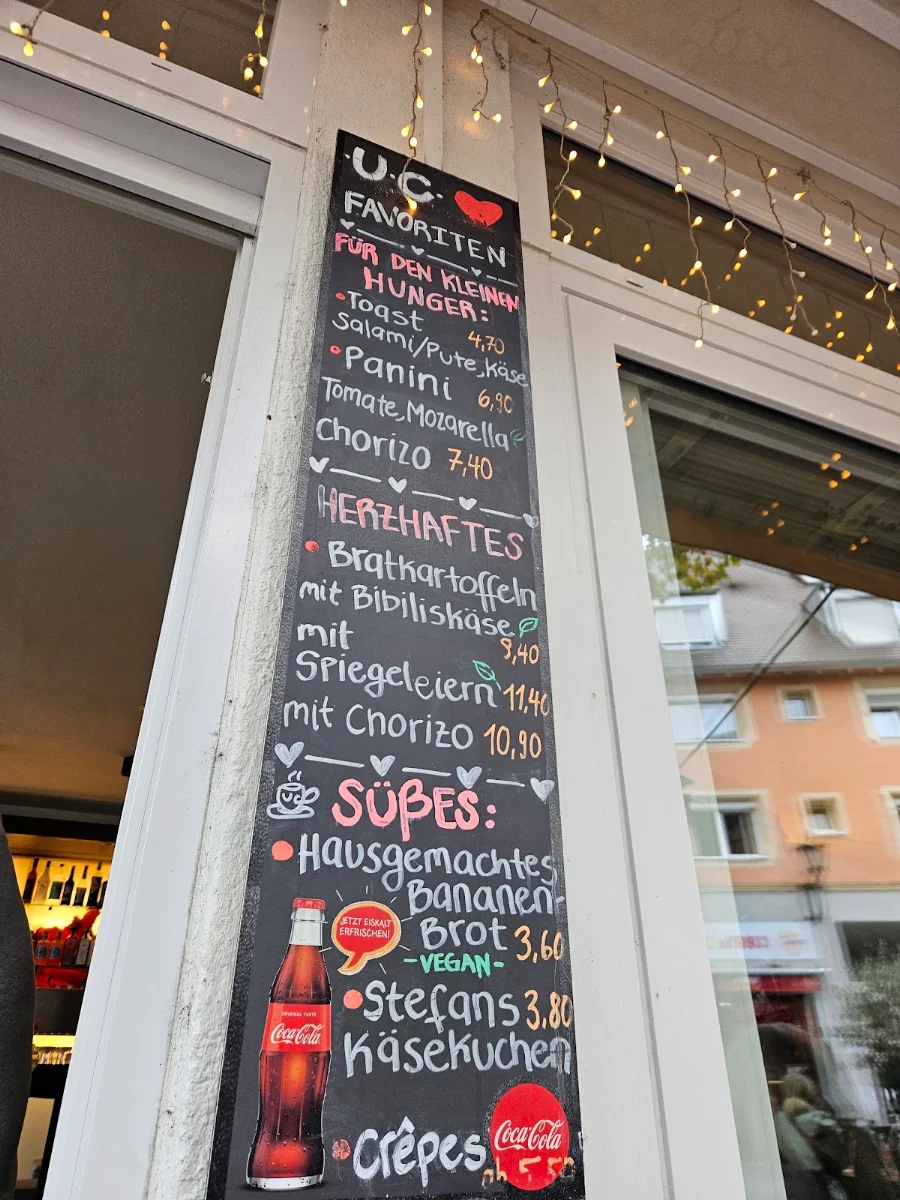 ·U·C·
FAVORITEN
FÜR DEN KLEINEN
HUNGER:
Toast 4,70
Salami/Pute,Käse
Panini 6,90
Tomate,Mozarella
Chorizo 7,40
HERZHAFTES
Bratkartoffeln
mit Bibiliskäse
mit 9,40
Spiegeleiern 11,40
mit Chorizo 10,90
SÜßES:
Hausgemachtes
Bananen-
Brot 3,60
-VEGAN-
JETZT EISKALT
ERFRISCHEN!
Stefans 3.80
Käsekuchen
ORIGINAL TASTE
Coca-Cola
Crêpes
Coca-Cola
ab 5,50